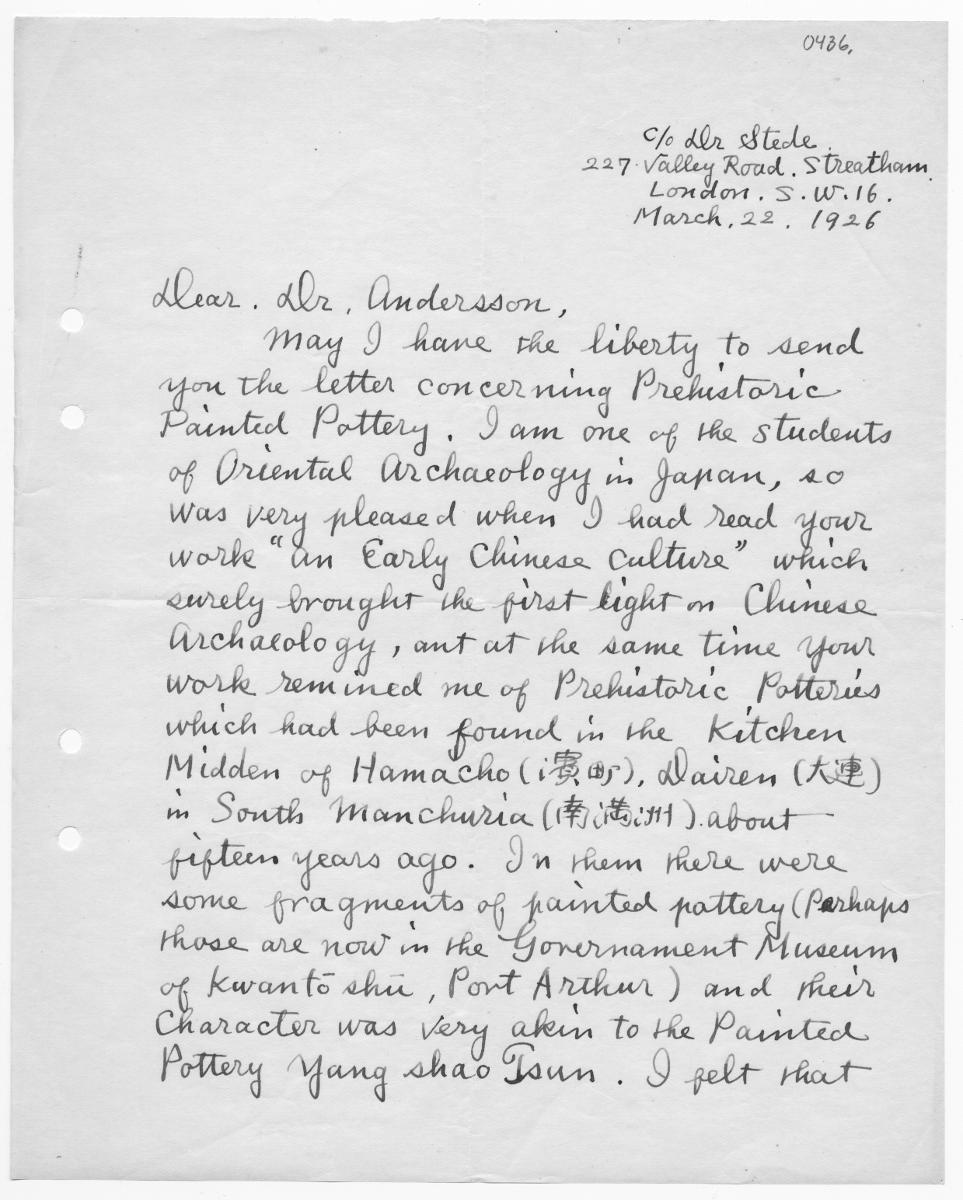 0436.
c/o Dr Stede.
227. Valley Road. Streatham.
London. S.W.16.
March. 22. 1926
Dear. Dr. Andersson,
May I have the liberty to send
you the letter concerning Prehistoric
Painted Pottery. I am one of the students
of Oriental Archaeology in Japan, so
was very pleased when I had read your
work "an Early Chinese culture" which
surely brought the first light on Chinese
Archaeology, ant at the same time your
work remined me of Prehistoric Potteries
which had been found in the Kitchen
Midden of Hamacho (濱町), Dairen (大連)
in South Manchuria (南満洲). about
fifteen years ago. In them there were
some fragments of painted pottery (Perhaps
those are now in the Governament Museum
of Kwantō shū, Port Arthur) and their
Character was very akin to the Painted
Pottery Yang shao Tsun. I felt that